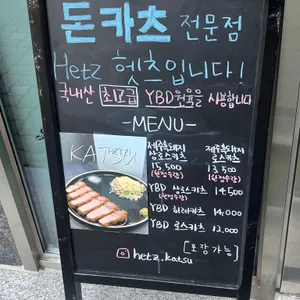 돈카츠 전문점
Hetz 헷츠입니다!
국내산 초고급 YBD원육을 사용합니다
-MENU-
KATSU
제주흑돼지 상로스카츠 15,500 (한정수량)
제주흑돼지 로스카츠 13,500 (한정수량)
YBD 상로스카츠 14,500
YBD 히레카츠 14,000
YBD 로스카츠 12,000
[포장가능]
hetz_katsu